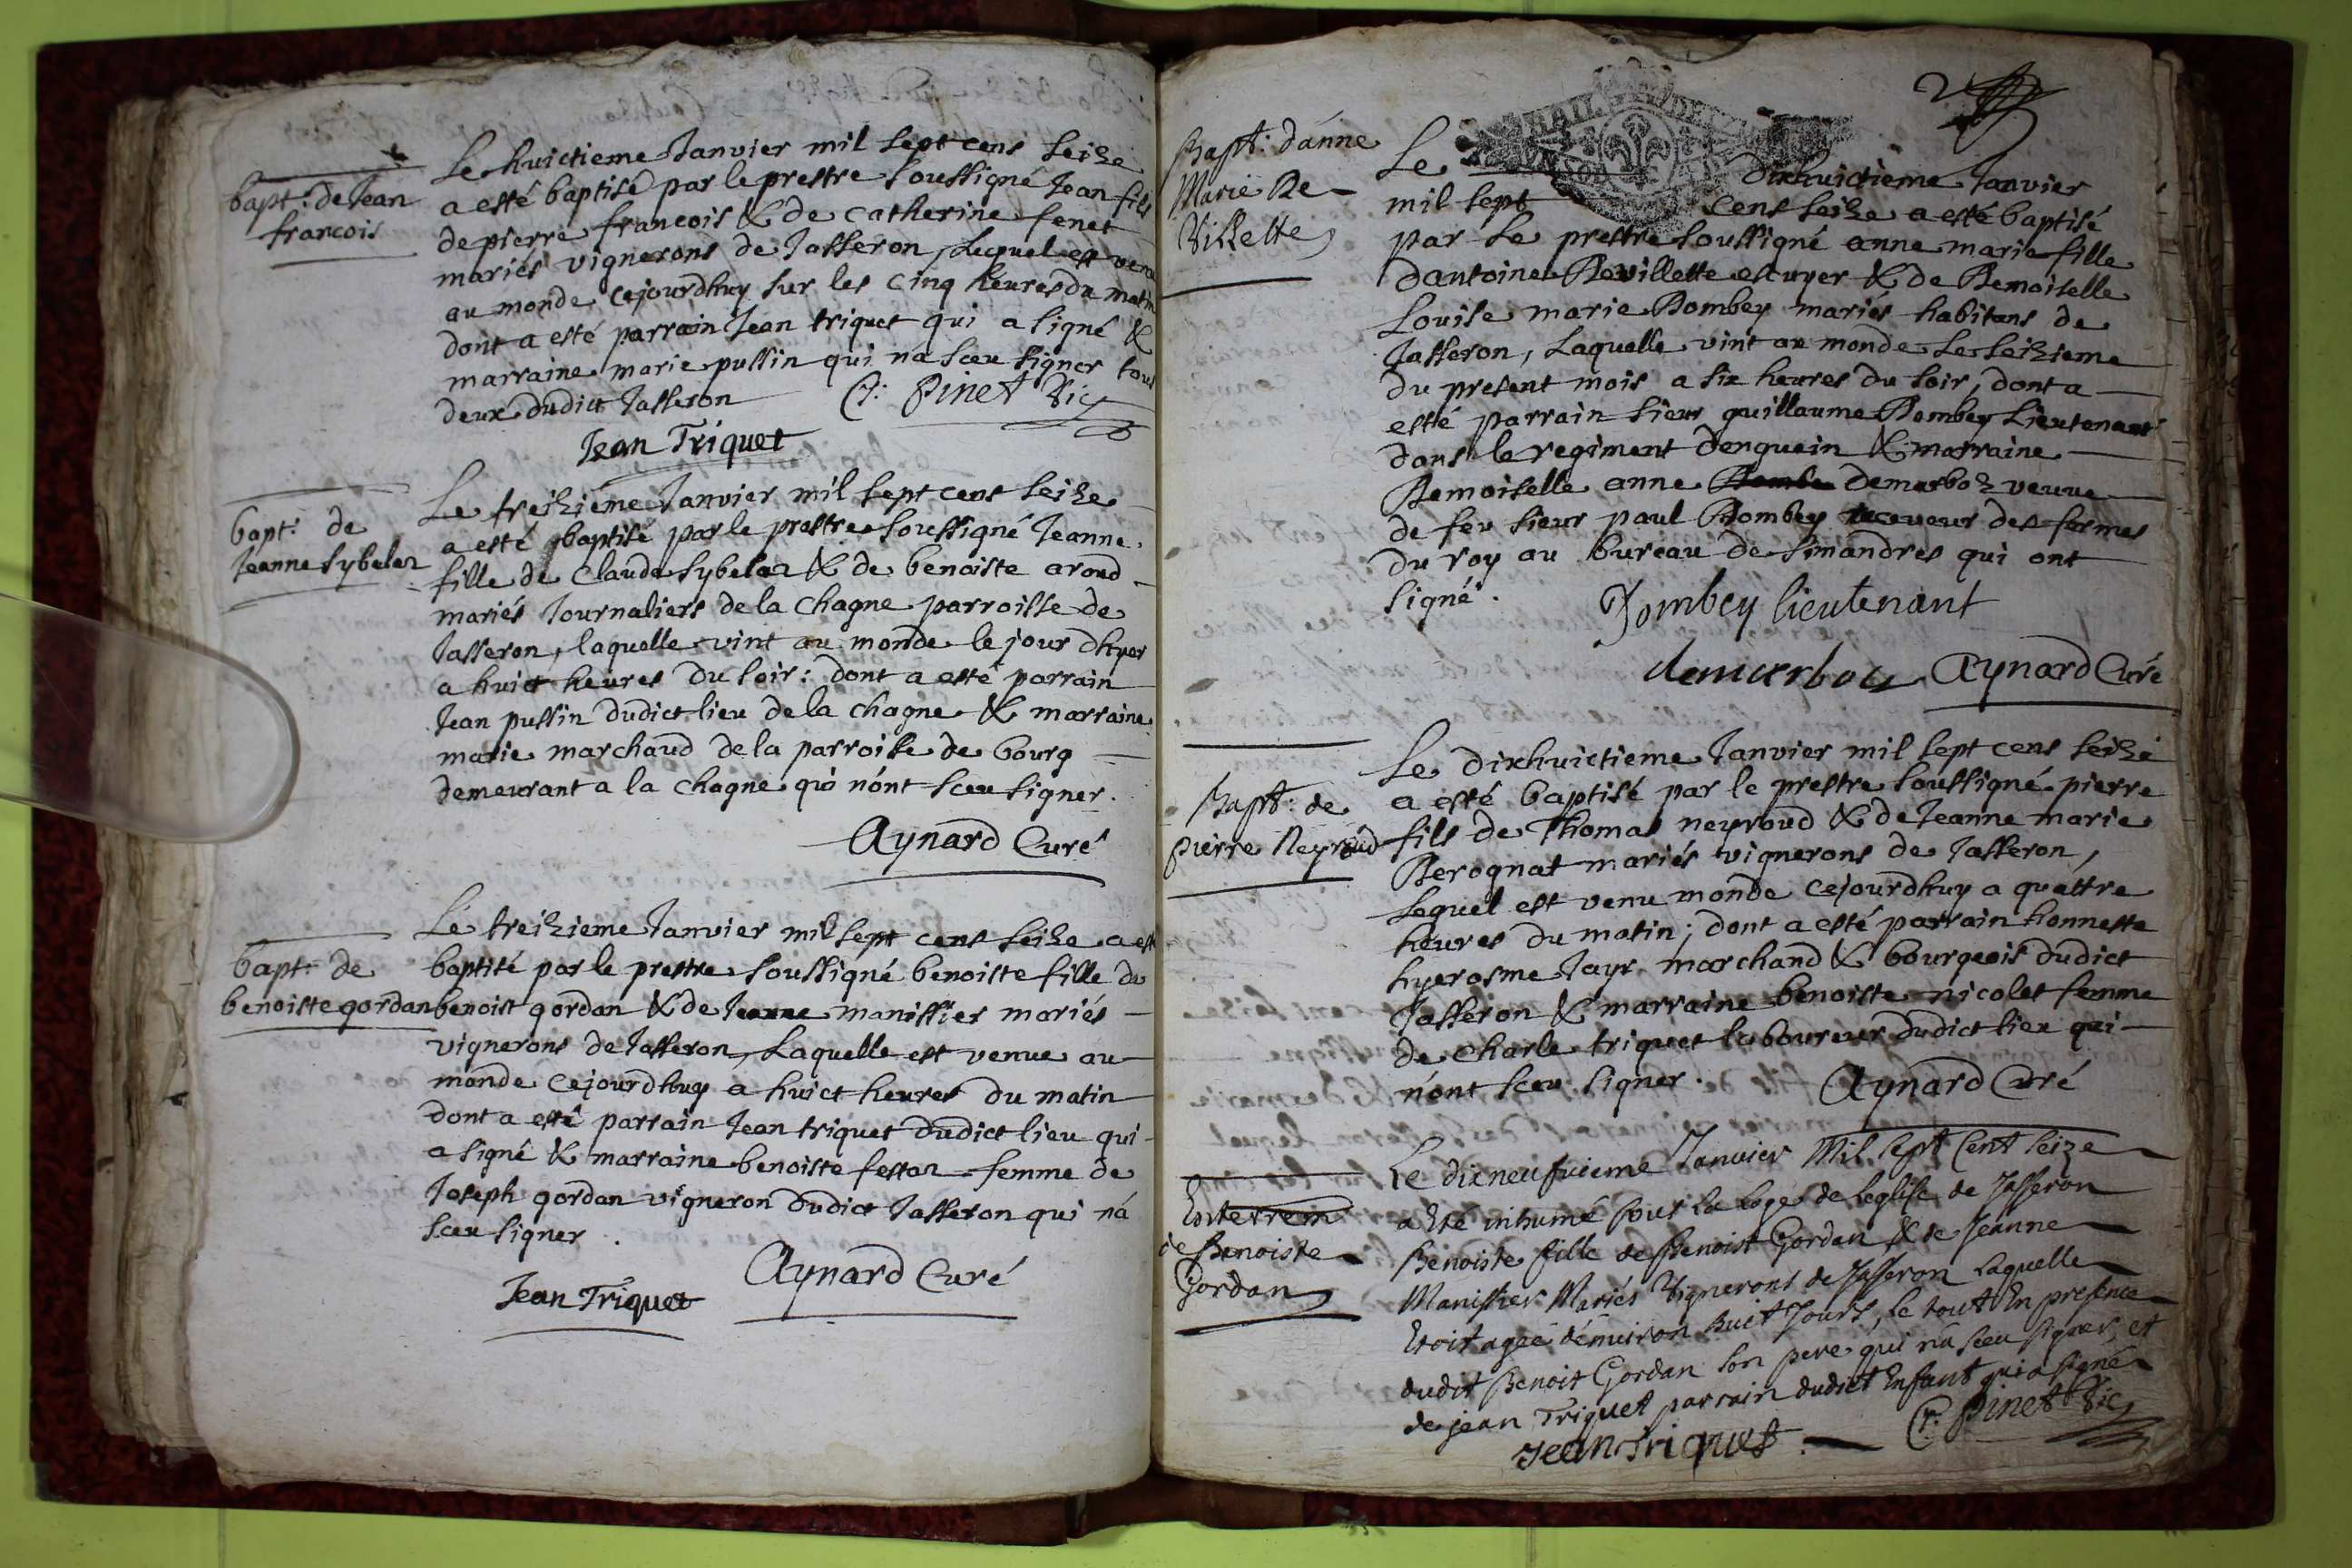 bapt: de Jean
francois
Le huictieme Janvier mil sept cens seize
a esté baptisé par le prestre soussigné Jean fils
de pierre francois & de catherine fenet
mariés vignerons de Jasseron, Lequel est venu
au monde cejourdhuy sur les cinq heures du matin
dont a esté parrain Jean triquet qui a signé &
marraine marie pussin qui n'a sceu signer tous
deux dudict Jasseron C: Pinet Vic
Jean Triquet
bapt: de
Jeanne Sybelas
Le treizieme Janvier mil sept cens seize
a esté baptisé par le prestre soussigné Jeanne
fille de Claude Sybelas & de benoiste arond
mariés Journaliers de la Chagne parroisse de
Jasseron, laquelle vint au monde le jour dhyer
a huict heures du soir: dont a esté parrain
Jean pussin dudict lieu de la chagne & marraine
marie marchaud de la parroisse de bourg
demeurant a la chagne qui n'ont sceu signer.
Aynard Curé
bapt: de
benoiste gordan
Le treizieme Janvier mil sept cens seize a esté
baptisé par le prestre soussigné benoiste fille de
benoist gordan & de Jeanne manissier mariés
vignerons de Jasseron, Laquelle est venue au
monde cejourdhuy a huict heures du matin
dont a esté parrain Jean triquet dudict lieu qui
a signé & marraine benoiste femme de
Joseph gordan vigneron dudict Jasseron qui n'a
sceu signer.
Aynard Curé
Jean Triquet
2
Bapt: d'anne
Marie De
Villette
Le dixhuictieme Janvier
mil sept cens seize a esté baptisé
par le prestre soussigné anne marie fille
dantoine Devillette escuyer & de Demoiselle
Louise marie Dombey mariés habitans de
Jasseron, Laquelle vint au monde le seizieme
du present mois a six heures du soir, dont a
esté parrain sieur guillaume Dombey Lieutenant
dans le regiment denguein & marraine
Demoiselle anne demarboz veuve
de feu sieur paul Dombey receveur des fermes
du roy au bureau de simandres qui ont
signé.
Dombey lieutenant
demarboz Aynard Curé
Bapt: de
pierre Neyroud
Le dixhuictieme Janvier mil sept cens seize
a esté baptisé par le prestre soussigné pierre
fils de Thomas neyroud & de Jeanne marie
Berognat mariés vignerons de Jasseron,
Lequel est venu monde cejourdhuy a quattre
heures du matin; dont a esté parrain honneste
hyerosme Jayr marchand & bourgeois dudict
Jasseron & marraine benoiste nicolet femme
de Charle triquet laboureur dudict lieu qui
n'ont sceu signer. Aynard Curé
Enterrem
de Benoiste
Gordan
Le dixneufvieme Janvier Mil sept Cent seize
a Eté inhumé sous la loge de l'eglise de Jasseron
Benoiste fille de Benoist Gordan & de Jeanne
Manissier Mariés Vignerons de Jasseron Laquelle
Etoit agée d'environ huit Jours, le tout En presence
dudit Benoit Gordan son pere qui n'a sceu signer, et
de jean Triquet parrain dudict Enfant qui a signé
Jean Triquet. C: Pinet Vic